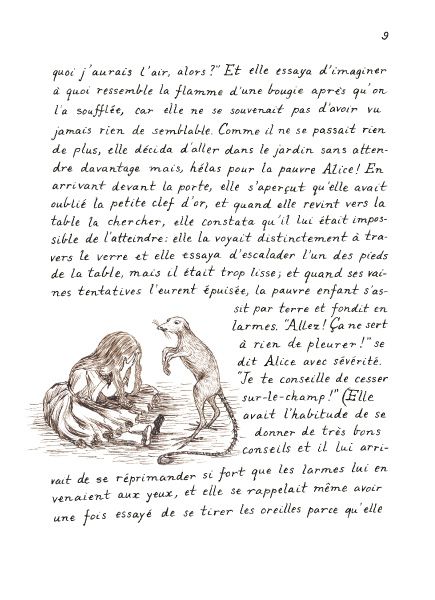 9
quoi j'aurais l'air, alors?" Et elle essaya d'imaginer
à quoi ressemble la flamme d'une bougie après qu'on
l'a soufflée, car elle ne se souvenait pas d'avoir vu
jamais rien de semblable. Comme il ne se passait rien
de plus, elle décida d'aller dans le jardin sans atten-
dre davantage mais, hélas pour la pauvre Alice! En
arrivant devant la porte, elle s'aperçut qu'elle avait
oublié la petite clef d'or, et quand elle revint vers la
table la chercher, elle constata qu'il lui était impos-
sible de l'atteindre: elle la voyait distinctement à tra-
vers le verre et elle essaya d'escalader l'un des pieds
de la table, mais il était trop lisse; et quand ses vai-
nes tentatives l'eurent épuisée, la pauvre enfant s'as-
sit par terre et fondit en
larmes. "Allez! Ça ne sert
à rien de pleurer!" se
dit Alice avec sévérité.
"Je te conseille de cesser
sur-le-champ!" (Elle
avait l'habitude de se
donner de très bons
conseils et il lui arri-
vait de se réprimander si fort que les larmes lui en
venaient aux yeux, et elle se rappelait même avoir
une fois essayé de se tirer les oreilles parce qu'elle